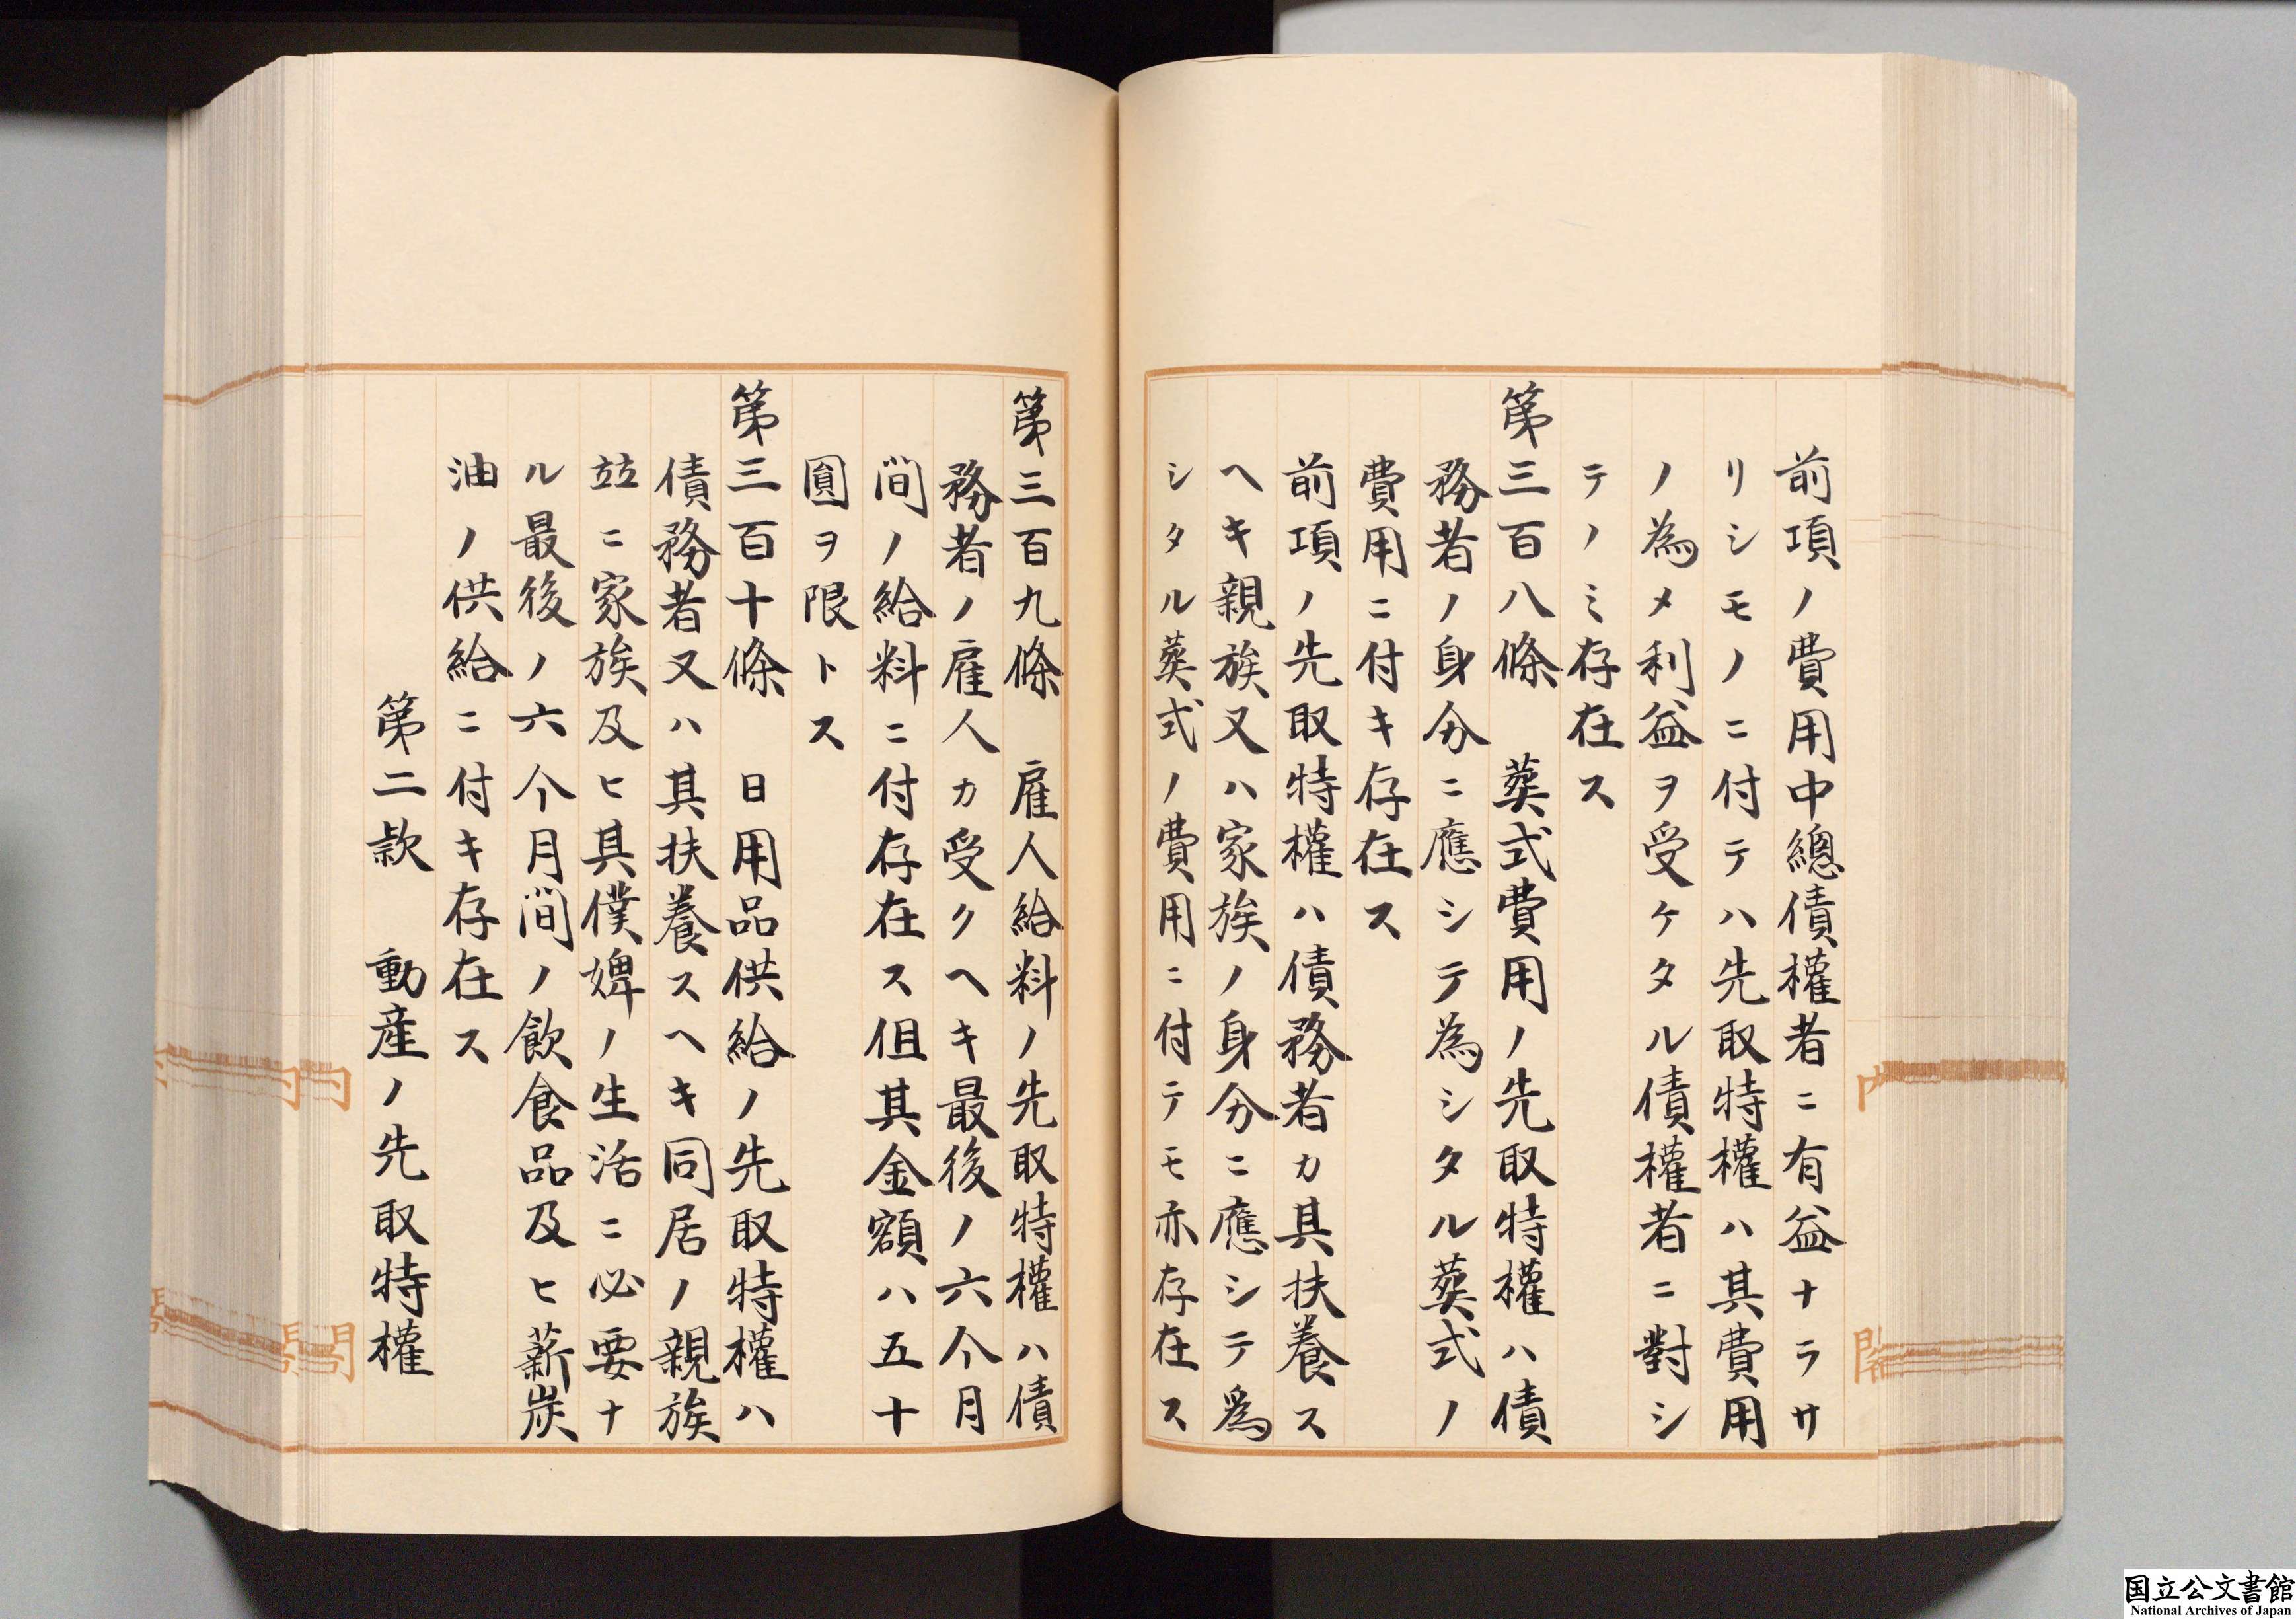 前項ノ費用中總債權者ニ有益ナラサ
リシモノニ付テハ先取特權ハ其費用
ノ為メ利益ヲ受ケタル債權者ニ對シ
テノミ存在ス
第三百八條　葬式費用ノ先取特權ハ債
務者ノ身分ニ應シテ為シタル葬式ノ
費用ニ付キ存在ス
前項ノ先取特權ハ債務者カ其扶養ス
ヘキ親族又ハ家族ノ身分ニ應シテ爲
シタル葬式ノ費用ニ付テモ亦存在ス
第三百九條　雇人給料ノ先取特權ハ債
務者ノ雇人カ受クヘキ最後ノ六个月
間ノ給料ニ付存在ス但其金額ハ五十
圓ヲ限トス
第三百十條　日用品供給ノ先取特權ハ
債務者又ハ其扶養スヘキ同居ノ親族
竝ニ家族及ヒ其僕婢ノ生活ニ必要ナ
ル最後ノ六个月間ノ飲食品及ヒ薪炭
油ノ供給ニ付キ存在ス
第二款　動産ノ先取特權
国立公文書館
National Archives of Japan